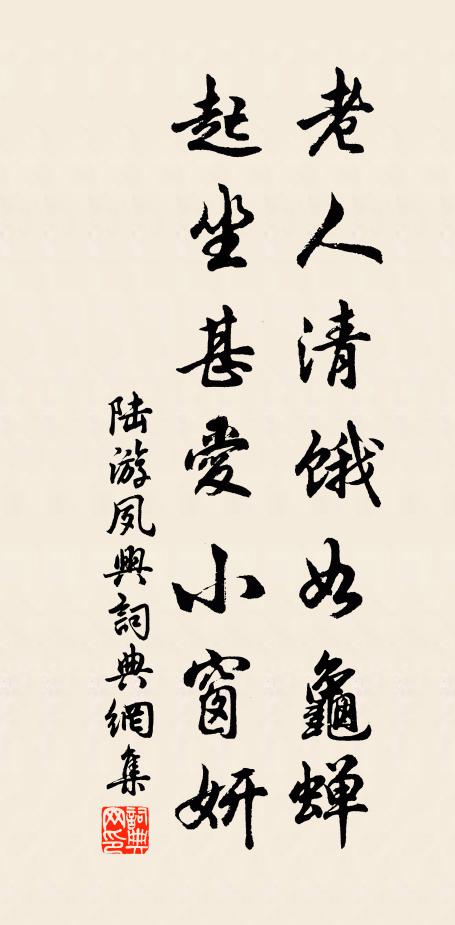 老人清餓如龜蟬
起坐甚愛小窗妍
陸游夙興詞典網集
詞典網印